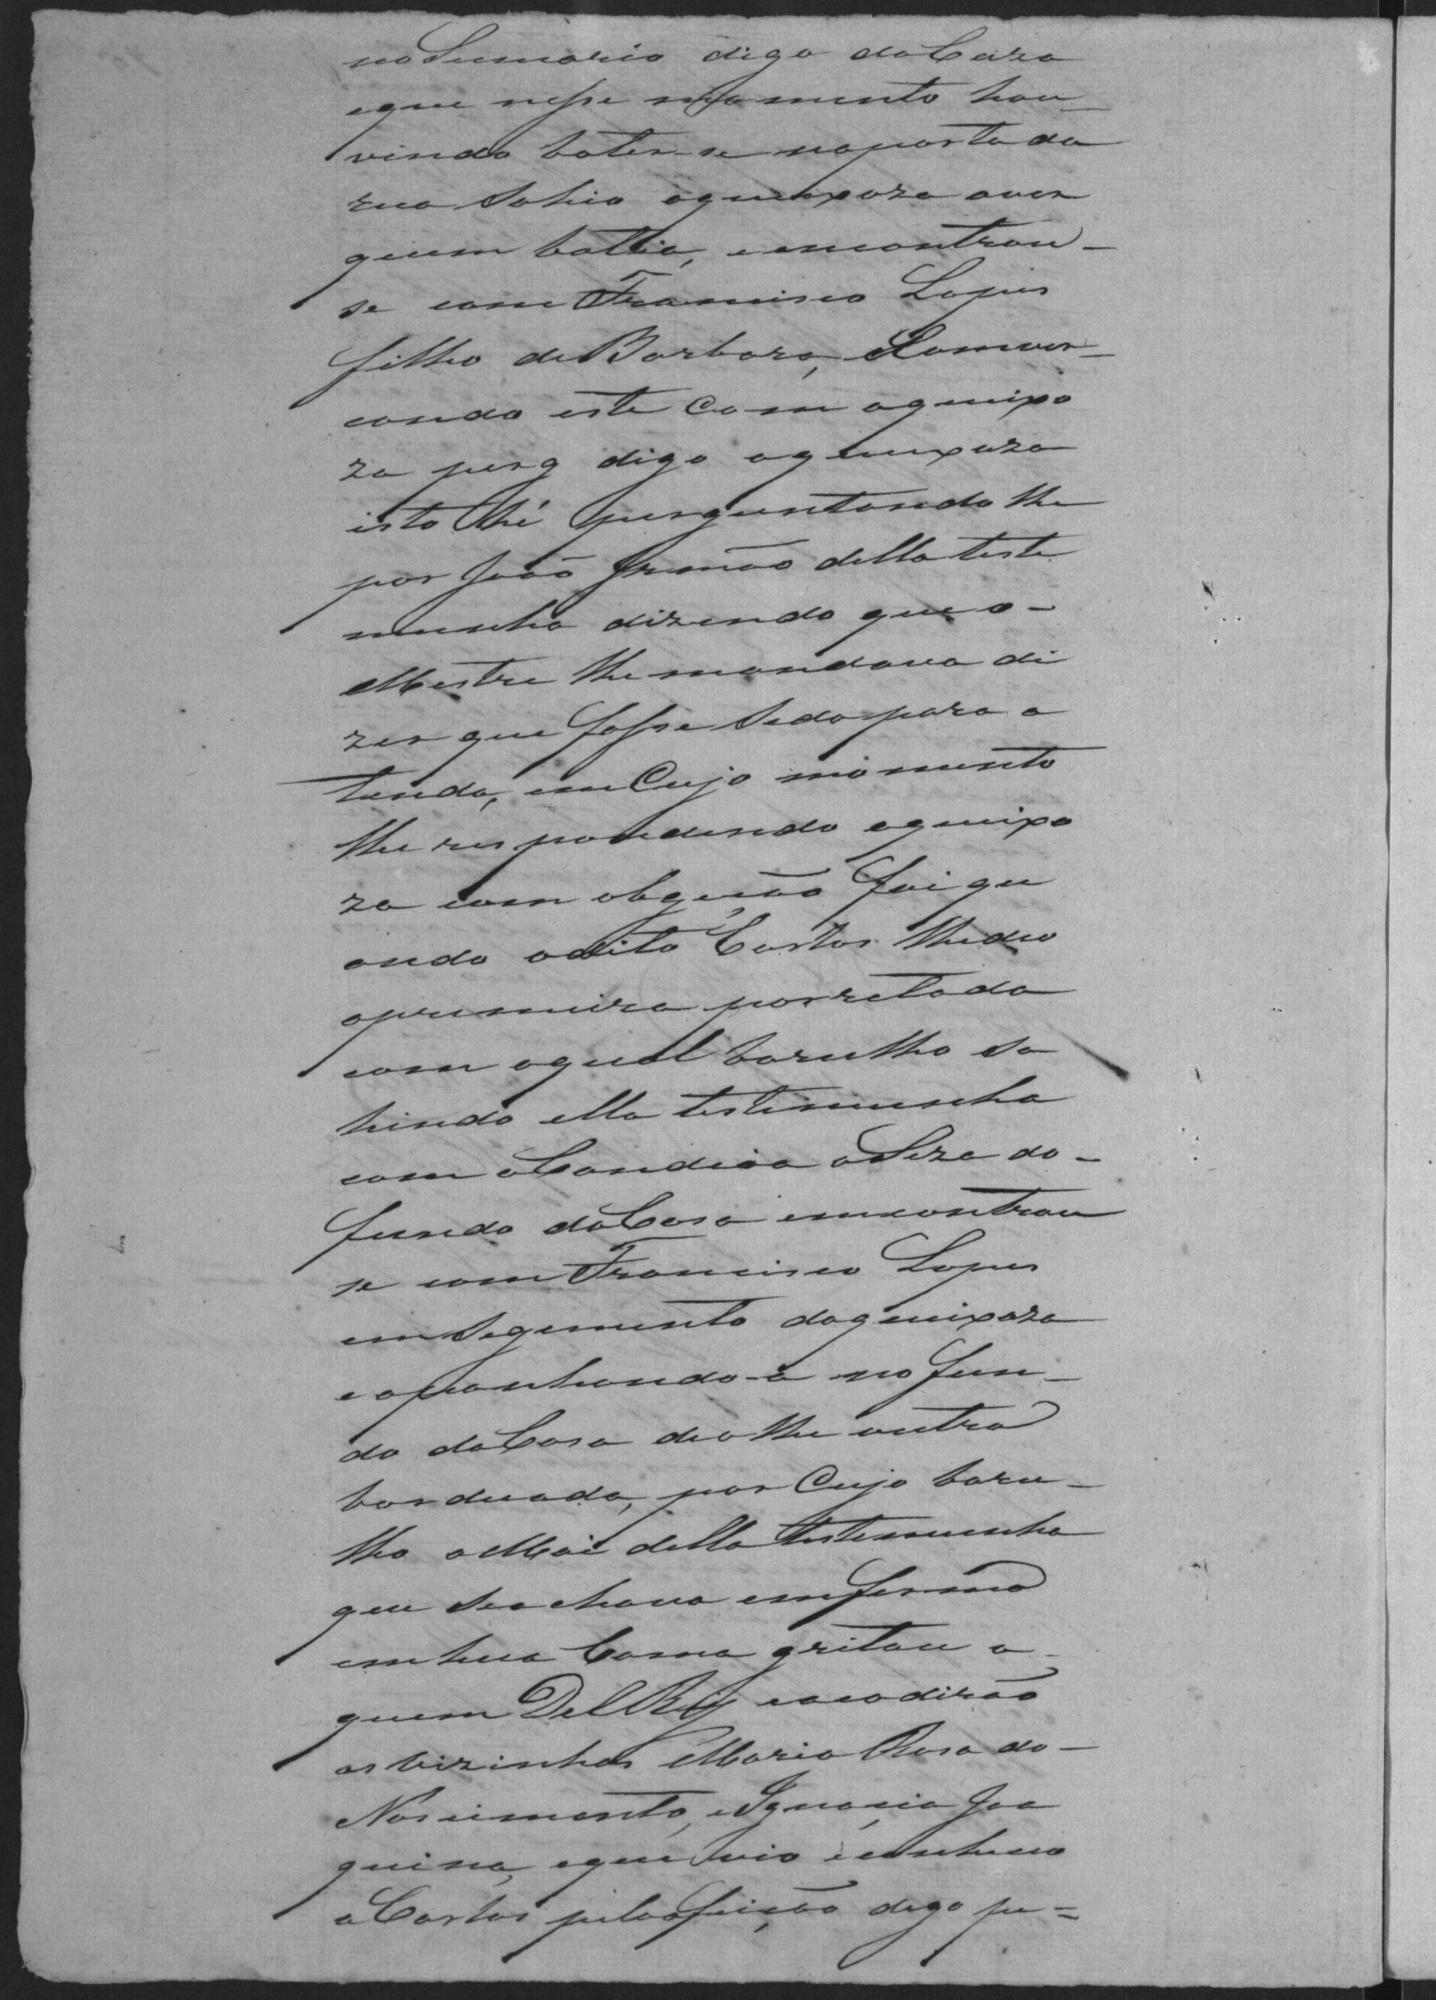 no Sumario digo da Caza
eque nesse momento hou-
vindo bater-se naporta da
rua sahio aqueixoza aver
quem batia, e encontrou-
se com Francisco Lopes
filho de Barbara,
cando este Com aqueixo
za perg digo aqueixoza
isto hé perguntando lhe
por João Irmão della teste
munha dizendo que o-
Mestre lhe mandava di
zer que fosse sedo para a
tenda, em Cujo momento
lhe respondendo aqueixo
za com
ando odito Carlos lhe deo
aprimeira porretada
com aqual barulho sa
hindo ella testimunha
com aCandeia aSeza do-
fundo daCasa emcontrou
se com Francisco Lopes
em segemento daqueixoza
e apanhando-a no fun-
do daCasa deo lhe outra
borduada, por Cujo baru-
lho aMai della testemunha
que seachava emferma
em hua Cama gritou a-
quem Del Rey eacodirão
as vizinhas Maria Rosa do-
Nascimento, e Ignacia Joa
quina, eque vio e conheceo
aCarlos pellas feição digo pe=